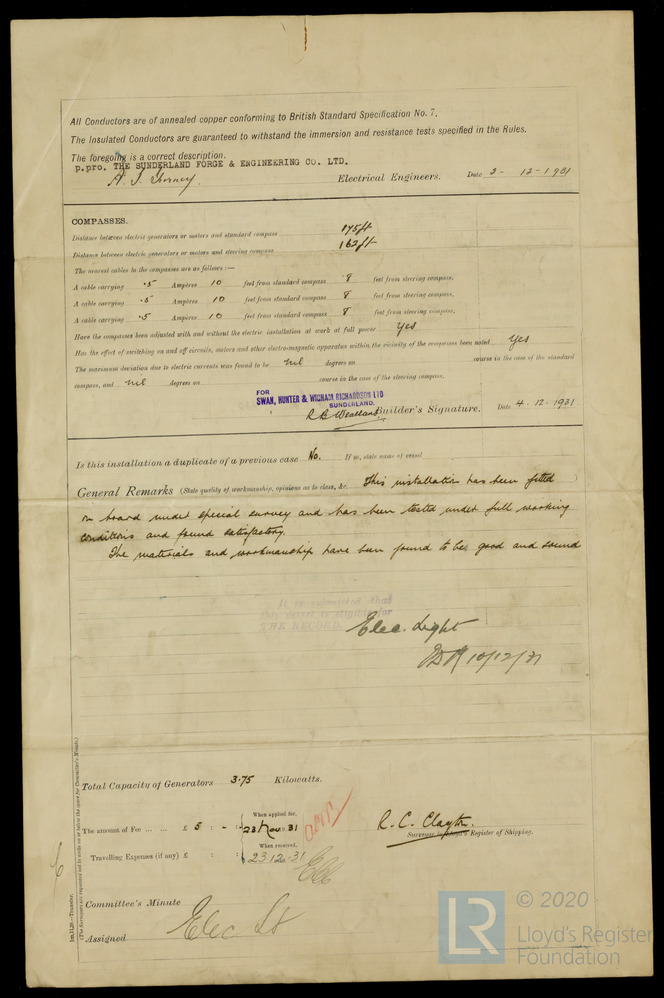 All Conductors are of annealed copper conforming to British Standard Specification No. 7.
The Insulated Conductors are guaranteed to withstand the immersion and resistance tests specified in the Rules.
The foregoing is a correct description.
p.pro. THE SUNDERLAND FORGE & ENGINEERING CO. LTD.
Electrical Engineers. Date 2-12-1931
COMPASSES.
Distance between electric generators or motors and standard compass 175ft
Distance between electric generators or motors and steering compass 162ft
The nearest cables to the compasses are as follows:—
A cable carrying .5 Ampères 10 feet from standard compass 8 feet from steering compass.
A cable carrying .5 Ampères 10 feet from standard compass 8 feet from steering compass.
A cable carrying .5 Ampères 10 feet from standard compass 8 feet from steering compass.
Have the compasses been adjusted with and without the electric installation at work at full power Yes
Has the effect of switching on and off circuits, motors and other electro-magnetic apparatus within the vicinity of the compasses been noted Yes
The maximum deviation due to electric currents was found to be nil degrees on course in the case of the standard
compass, and nil degrees on course in the case of the steering compass.
FOR
SWAN, HUNTER & WIGHAM RICHARDSON LTD
SUNDERLAND.
Builder's Signature. Date 4.12.1931
Is this installation a duplicate of a previous case No. If so, state name of vessel
General Remarks (State quality of workmanship, opinions as to class, &c. This installation has been fitted
on board under special survey and has been tested under full working
conditions and found satisfactory.
The materials and workmanship have been found to be good and sound
It is submitted that
this vessel is eligible for
THE RECORD.
Elec. Light
10/12/31
Total Capacity of Generators 3.75 Kilowatts.
The amount of Fee ... ... £ 5 : - : When applied for, 23 Nov. 31
Travelling Expenses (if any) £ : : When received, 23.12.31
R. C. Clayton.
Surveyor to Lloyd's Register of Shipping.
Committee's Minute
Elec Lt
Assigned
1m,11,28.—Transfer.
(The Surveyors are requested not to write on or below the space for Committee's Minute.)
LR
© 2020
Lloyd's Register
Foundation